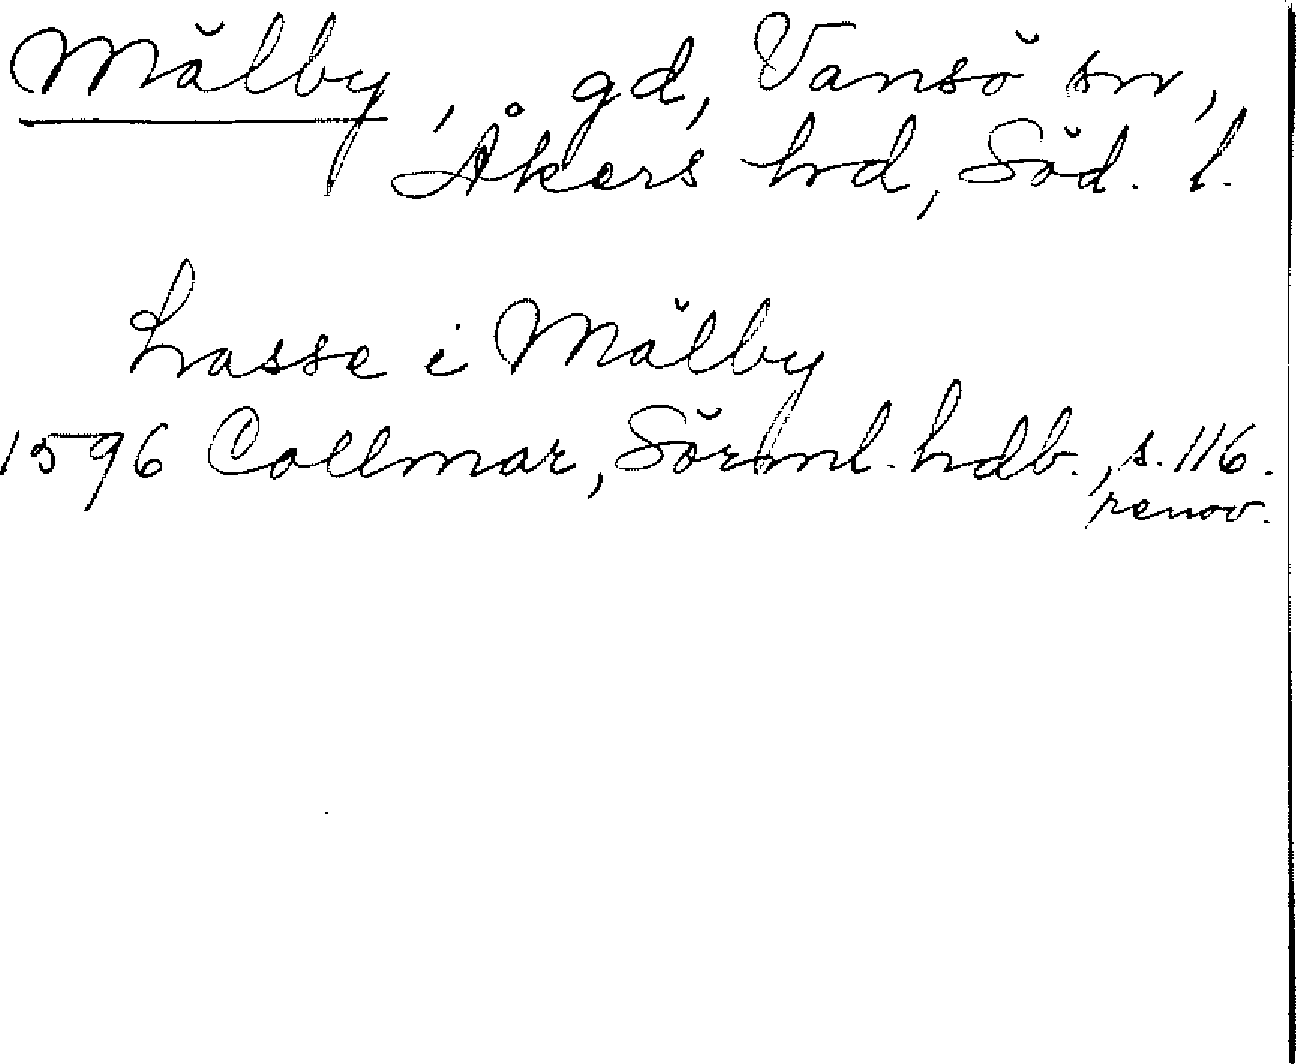 Mälby, gd, Vansö sn,
Åkers hd, Söd. l.
Lasse i Mälby
1596 Collmar, Sörml. hdb., s. 116.
renov.